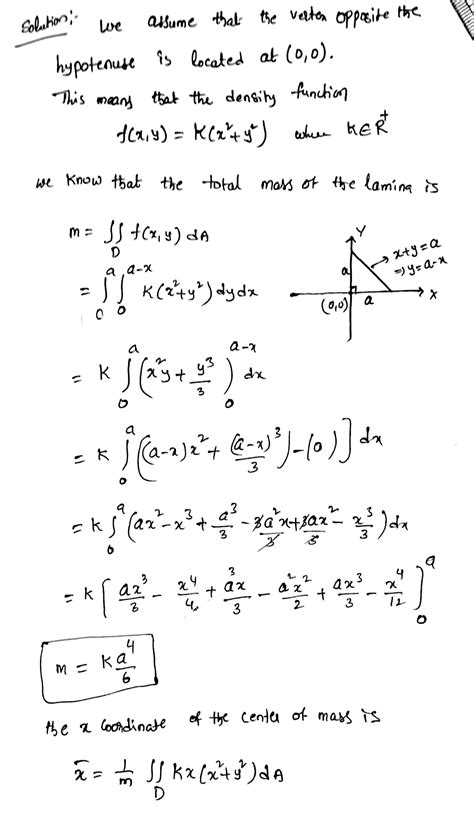 Solution:- we assume that the vertex opposite the
hypotenuse is located at (0,0).
This means that the density function
f(x,y) = K(x²+y²) where K∈R⁺
we know that the total mass of the lamina is
m = ∬_D f(x,y) dA
= ∫₀^a ∫₀^{a-x} K(x²+y²) dy dx
Y
x+y=a
⇒ y=a-x
a
(0,0)
a
X
= K ∫₀^a (x²y + y³/3)₀^{a-x} dx
= K ∫₀^a ((a-x)x² + (a-x)³/3) - (0)] dx
= K ∫₀^a (ax² - x³ + a³/3 - 3a²x/3 + 3ax²/3 - x³/3) dx
= K [ax³/3 - x⁴/4 + a³x/3 - a²x²/2 + ax³/3 - x⁴/12]₀^a
m = K a⁴/6
the x coordinate of the center of mass is
x̄ = 1/m ∬_D Kx(x²+y²) dA